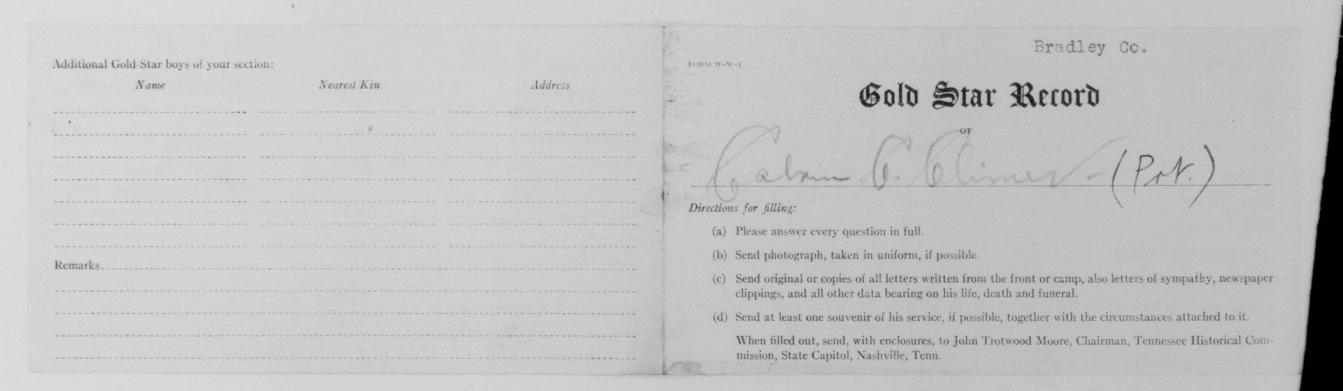 Additional Gold-Star boys of your section:
Name Nearest Kin Address
Remarks
Bradley Co.
FORM W-W-1
Gold Star Record
OF
Calvin C. Climer (Pvt.)
Directions for filling:
(a) Please answer every question in full.
(b) Send photograph, taken in uniform, if possible.
(c) Send original or copies of all letters written from the front or camp, also letters of sympathy, newspaper
clippings, and all other data bearing on his life, death and funeral.
(d) Send at least one souvenir of his service, if possible, together with the circumstances attached to it.
When filled out, send, with enclosures, to John Trotwood Moore, Chairman, Tennessee Historical Com-
mission, State Capitol, Nashville, Tenn.